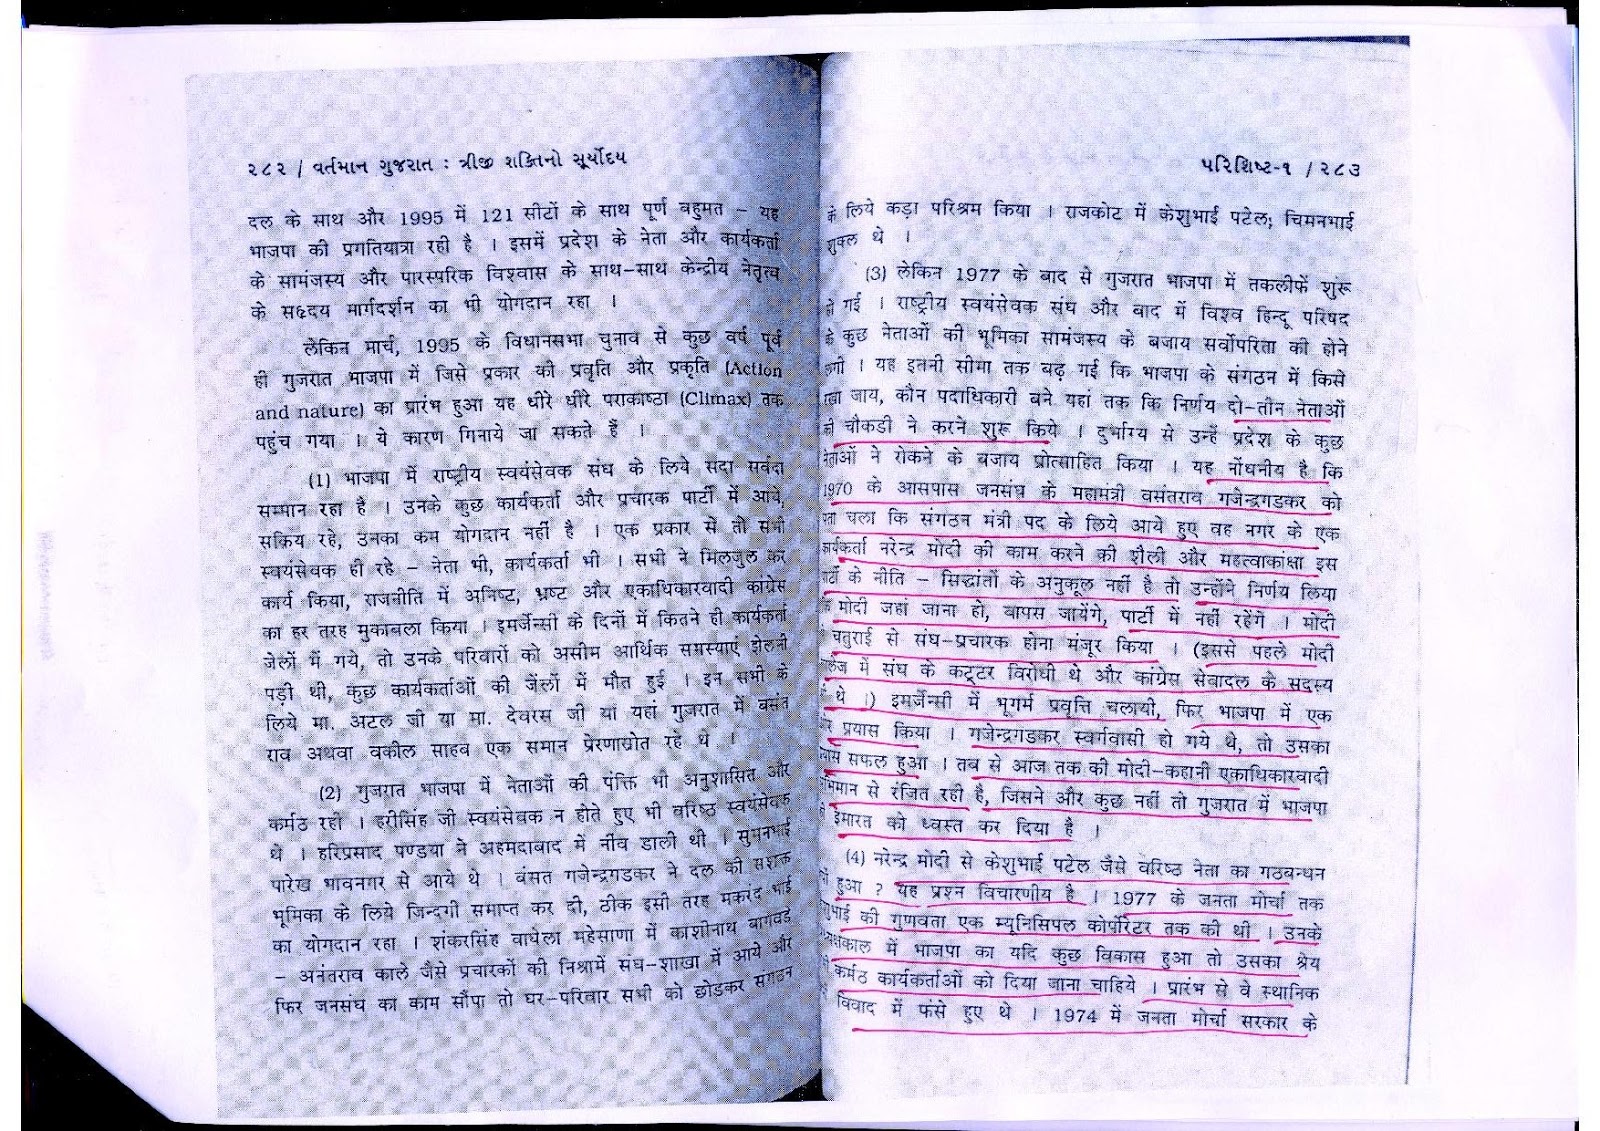 ૨૮૨ / વર્તમાન ગુજરાત : ત્રીજી શક્તિનો સૂર્યોદય
दल के साथ और 1995 में 121 सीटों के साथ पूर्ण बहुमत – यह
भाजपा की प्रगतियात्रा रही है । इसमें प्रदेश के नेता और कार्यकर्ता
के सामंजस्य और पारस्परिक विश्वास के साथ-साथ केन्द्रीय नेतृत्व
के सहृदय मार्गदर्शन का भी योगदान रहा ।
लेकिन मार्च, 1995 के विधानसभा चुनाव से कुछ वर्ष पूर्व
ही गुजरात भाजपा में जिसे प्रकार की प्रवृति और प्रकृति (Action
and nature) का प्रारंभ हुआ यह धीरे धीरे पराकाष्ठा (Climax) तक
पहुंच गया । ये कारण गिनाये जा सकते हैं ।
(1) भाजपा में राष्ट्रीय स्वयंसेवक संघ के लिये सदा सर्वदा
सम्मान रहा है । उनके कुछ कार्यकर्ता और प्रचारक पार्टी में आये,
सक्रिय रहे, उनका कम योगदान नहीं है । एक प्रकार से तो सभी
स्वयंसेवक ही रहे – नेता भी, कार्यकर्ता भी । सभी ने मिलजुल कर
कार्य किया, राजनीति में अनिष्ट, भ्रष्ट और एकाधिकारवादी कांग्रेस
का हर तरह मुकाबला किया । इमर्जेन्सी के दिनों में कितने ही कार्यकर्ता
जेलों में गये, तो उनके परिवारों को असीम आर्थिक समस्याएं झेलनी
पड़ी थी, कुछ कार्यकर्ताओं की जेलों में मौत हुई । इन सभी के
लिये मा. अटल जी या मा. देवरस जी या यहां गुजरात में बसंत
राव अथवा वकील साहब एक समान प्रेरणास्रोत रहे थे ।
(2) गुजरात भाजपा में नेताओं की पंक्ति भी अनुशासित और
कर्मठ रही । हरीसिंह जी स्वयंसेवक न होते हुए भी वरिष्ठ स्वयंसेवक
थे । हरिप्रसाद पण्डया ने अहमदाबाद में नींव डाली थी । सुमनभाई
पारेख भावनगर से आये थे । वंसत गजेन्द्रगडकर ने दल की सशक्त
भूमिका के लिये जिन्दगी समाप्त कर दी, ठीक इसी तरह मकरंद भाई
का योगदान रहा । शंकरसिंह वाघेला महेसाणा में काशीनाथ बागवडे
– अनंतराव काले जैसे प्रचारकों की निश्रामें संघ-शाखा में आये और
फिर जनसंघ का काम सौंपा तो घर-परिवार सभी को छोडकर संगठन
પરિશિષ્ટ-૧ / ૨૮૩
के लिये कड़ा परिश्रम किया । राजकोट में केशुभाई पटेल; चिमनभाई
शुक्ल थे ।
(3) लेकिन 1977 के बाद से गुजरात भाजपा में तकलीफें शुरू
हो गई । राष्ट्रीय स्वयंसेवक संघ और बाद में विश्व हिन्दू परिषद
के कुछ नेताओं की भूमिका सामंजस्य के बजाय सर्वोपरिता की होने
लगी । यह इतनी सीमा तक बढ़ गई कि भाजपा के संगठन में किसे
रखा जाय, कौन पदाधिकारी बने यहां तक कि निर्णय दो-तीन नेताओं
की चौकडी ने करने शुरू किये । दुर्भाग्य से उन्हें प्रदेश के कुछ
नेताओं ने रोकने के बजाय प्रोत्साहित किया । यह नोंधनीय है कि
1970 के आसपास जनसंघ के महामंत्री वसंतराव गजेन्द्रगडकर को
पता चला कि संगठन मंत्री पद के लिये आये हुए वह नगर के एक
कार्यकर्ता नरेन्द्र मोदी की काम करने की शैली और महत्वाकांक्षा इस
पार्टी के नीति – सिद्धांतों के अनुकूल नहीं है तो उन्होंने निर्णय लिया
मोदी जहां जाना हो, वापस जायेंगे, पार्टी में नहीं रहेंगे । मोदी
चतुराई से संघ-प्रचारक होना मंजूर किया । (इससे पहले मोदी
कॉलेज में संघ के कट्टर विरोधी थे और कांग्रेस सेवादल के सदस्य
थे ।) इमर्जेन्सी में भूगर्भ प्रवृत्ति चलायी, फिर भाजपा में एक
प्रयास किया । गजेन्द्रगडकर स्वर्गवासी हो गये थे, तो उसका
प्रयास सफल हुआ । तब से आज तक की मोदी-कहानी एकाधिकारवादी
अभिमान से रंजित रही है, जिसने और कुछ नहीं तो गुजरात में भाजपा
इमारत को ध्वस्त कर दिया है ।
(4) नरेन्द्र मोदी से केशुभाई पटेल जैसे वरिष्ठ नेता का गठबन्धन
हुआ ? यह प्रश्न विचारणीय है । 1977 के जनता मोर्चा तक
केशुभाई की गुणवता एक म्यूनिसिपल कोर्पोरेटर तक की थी । उनके
अध्यक्षकाल में भाजपा का यदि कुछ विकास हुआ तो उसका श्रेय
कर्मठ कार्यकर्ताओं को दिया जाना चाहिये । प्रारंभ से वे स्थानिक
विवाद में फंसे हुए थे । 1974 में जनता मोर्चा सरकार के